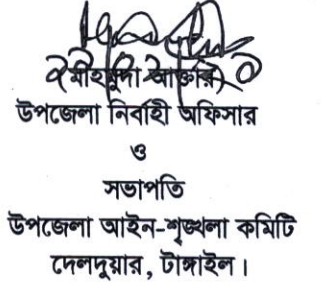 উপজেলা নির্বাহী অফিসার
ও
সভাপতি
উপজেলা আইন-শৃঙ্খলা কমিটি
দেলদুয়ার, টাঙ্গাইল।